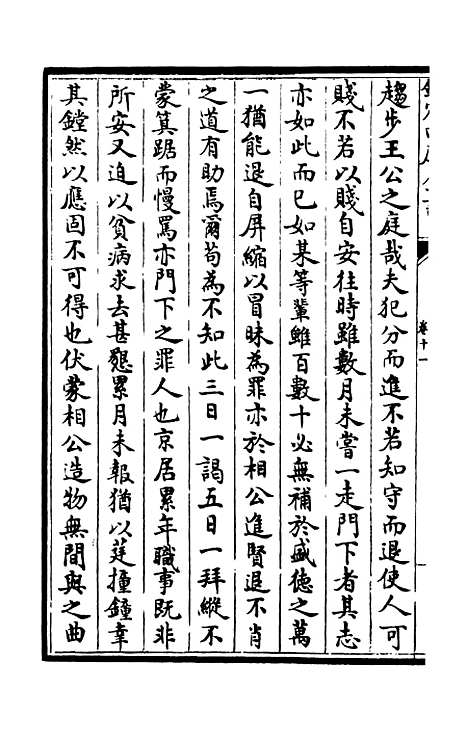 趨步王公之庭哉夫犯分而進不若知守而退使人可
賤不若以賤自安往時雖數月未嘗一走門下者其志
亦如此而已如某等輩雖百數十必無補於盛徳之萬
一猶能退自屏縮以冒昧為罪亦於相公進賢退不肖
之道有助焉爾苟為不知此三日一謁五日一拜縱不
蒙箕踞而慢罵亦門下之罪人也京居累年職事既非
所安又迫以貧病求去甚懇累月未報猶以莛撞鐘幸
其鏜然以應固不可得也伏蒙相公造物無間與之曲
卷十一